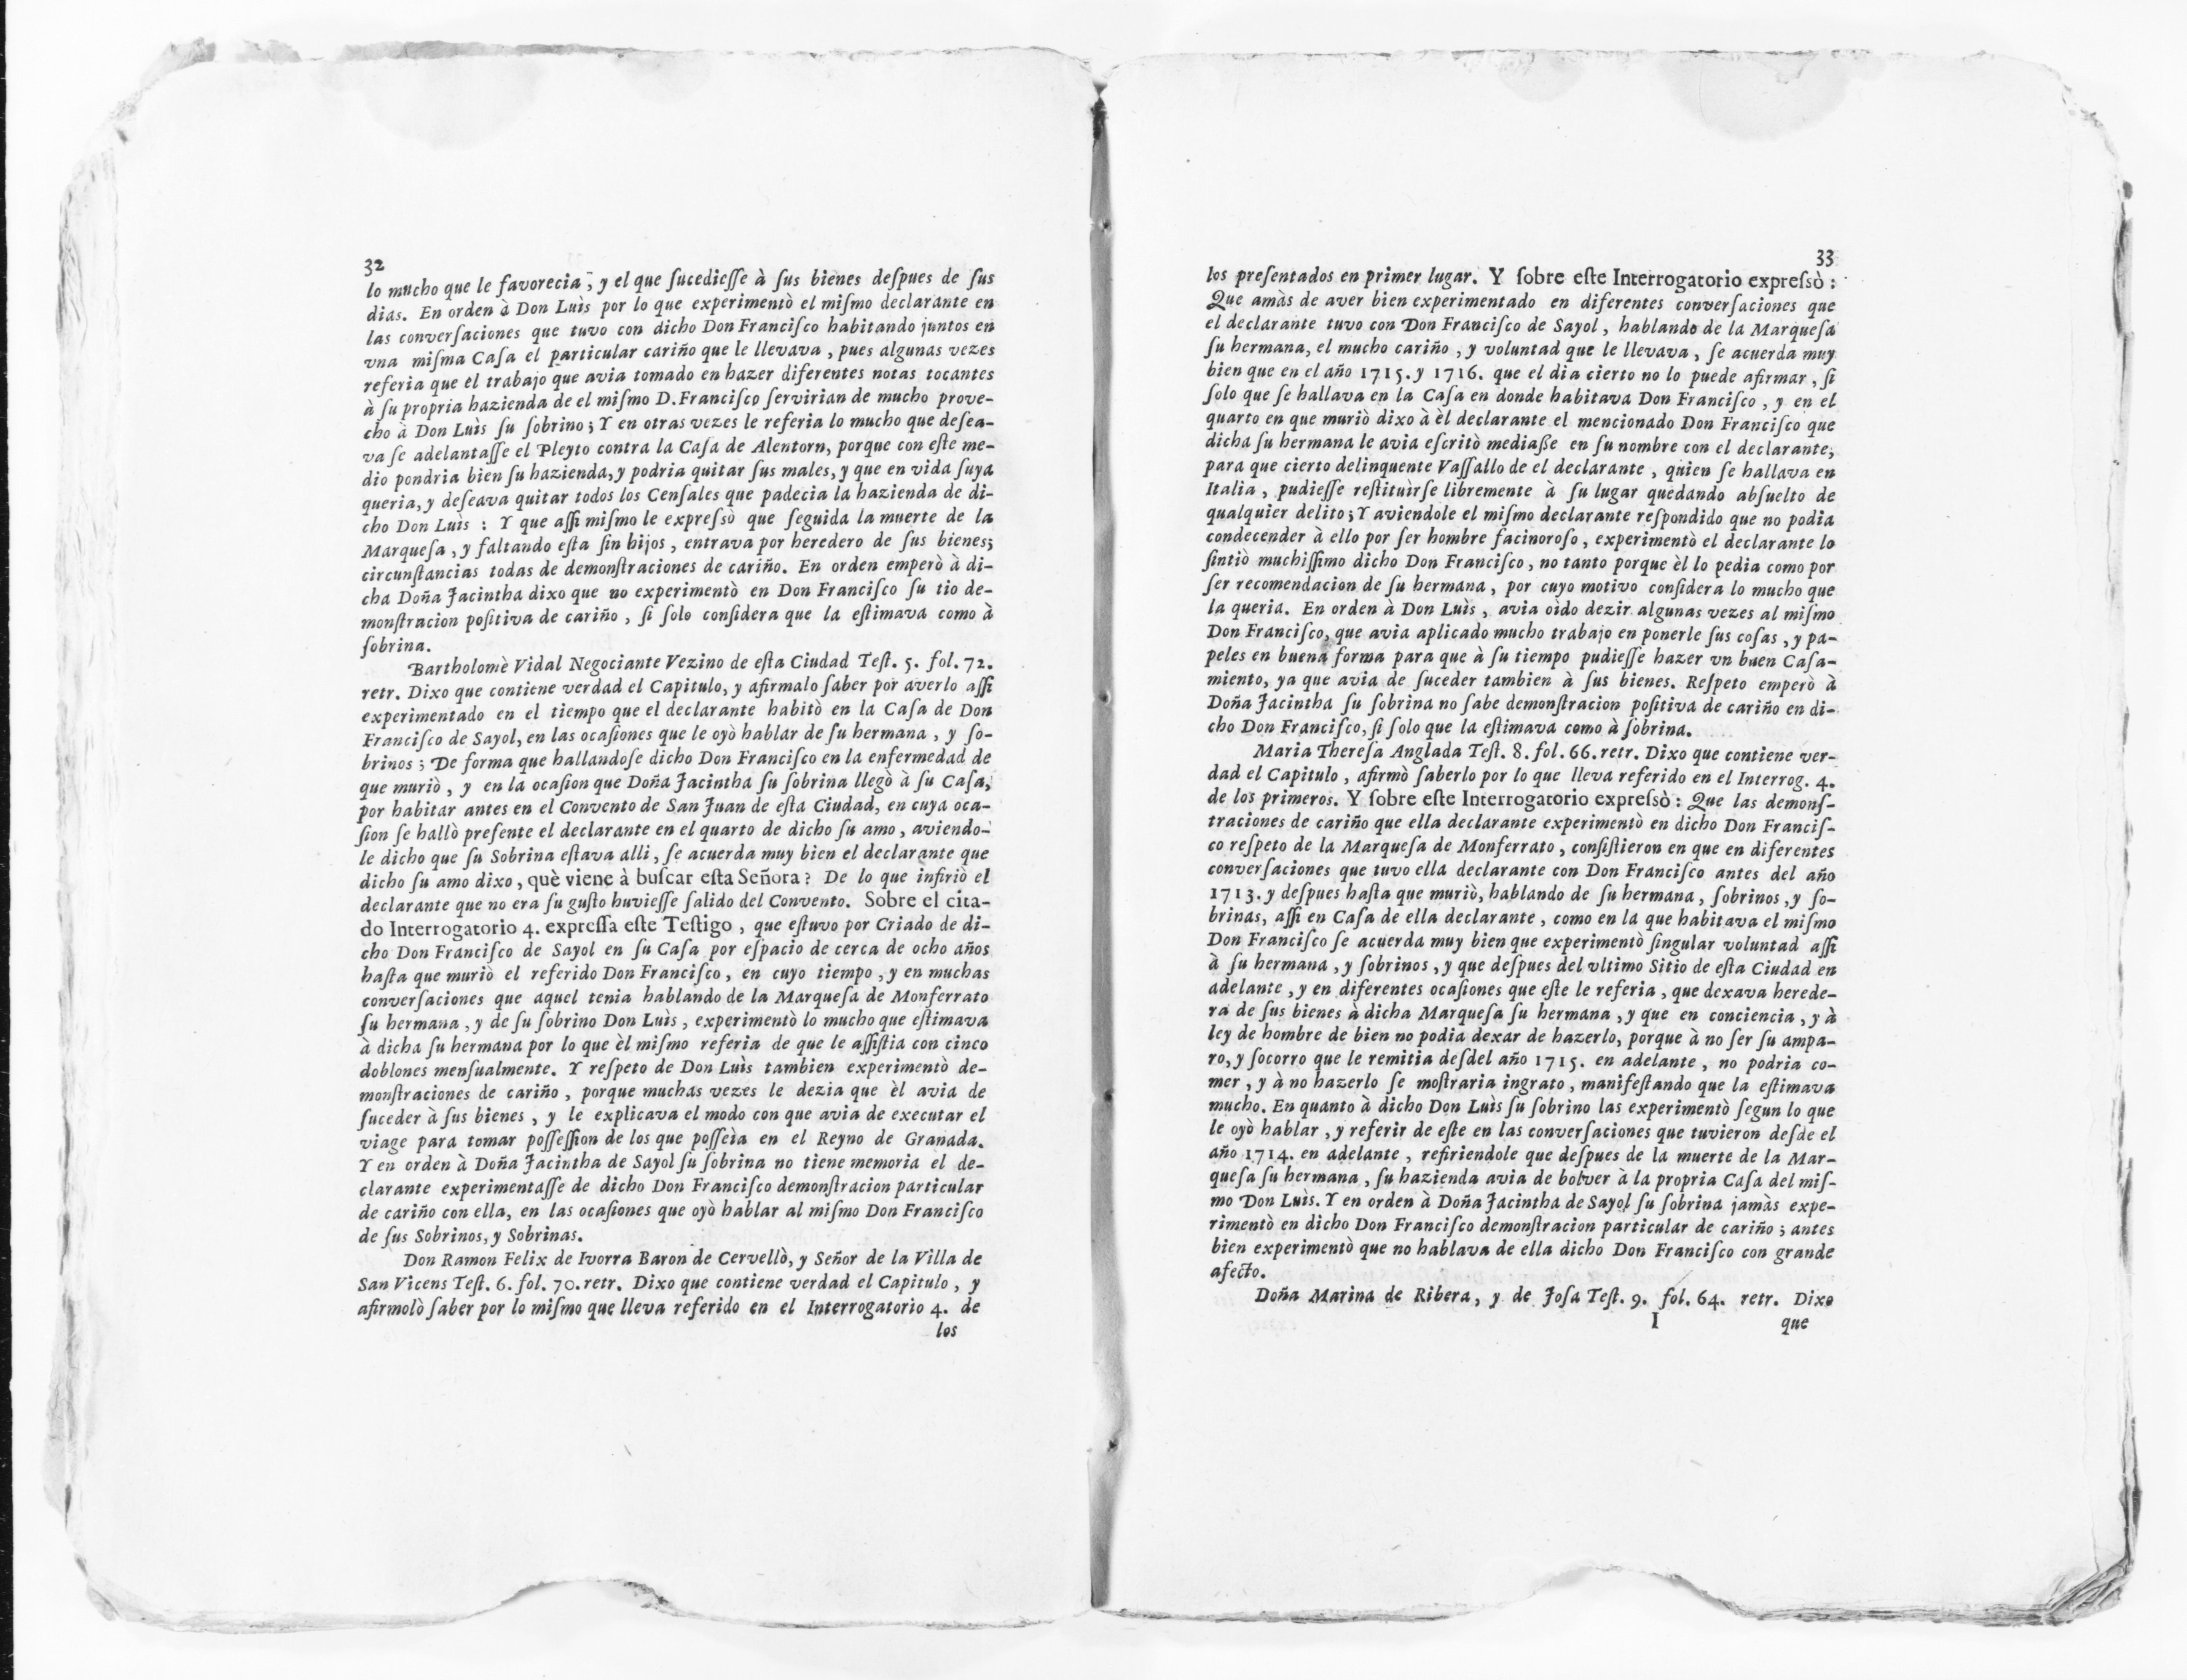 32
lo mucho que le favorecia, y el que ſucedieſſe à ſus bienes deſpues de ſus
dias. En orden à Don Luìs por lo que experimentò el miſmo declarante en
las converſaciones que tuvo con dicho Don Franciſco habitando juntos en
vna miſma Caſa el particular cariño que le llevava, pues algunas vezes
referia que el trabajo que avia tomado en hazer diferentes notas tocantes
à ſu propria hazienda de el miſmo D. Franciſco ſervirian de mucho prove-
cho à Don Luìs ſu ſobrino; Y en otras vezes le referia lo mucho que deſea-
va ſe adelantaſſe el Pleyto contra la Caſa de Alentorn, porque con eſte me-
dio pondria bien ſu hazienda, y podria quitar ſus males, y que en vida ſuya
queria, y deſeava quitar todos los Cenſales que padecia la hazienda de di-
cho Don Luìs : Y que aſſi miſmo le expreſsò que ſeguida la muerte de la
Marqueſa, y faltando eſta ſin hijos, entrava por heredero de ſus bienes;
circunſtancias todas de demonſtraciones de cariño. En orden emperò à di-
cha Doña Jacintha dixo que no experimentò en Don Franciſco ſu tio de-
monſtracion poſitiva de cariño, ſi ſolo conſidera que la eſtimava como à
ſobrina.
Bartholomè Vidal Negociante Vezino de eſta Ciudad Teſt. 5. fol. 72.
retr. Dixo que contiene verdad el Capitulo, y afirmalo ſaber por averlo aſſi
experimentado en el tiempo que el declarante habitò en la Caſa de Don
Franciſco de Sayol, en las ocaſiones que le oyò hablar de ſu hermana, y ſo-
brinos; De forma que hallandoſe dicho Don Franciſco en la enfermedad de
que muriò, y en la ocaſion que Doña Jacintha ſu ſobrina llegò à ſu Caſa,
por habitar antes en el Convento de San Juan de eſta Ciudad, en cuya oca-
ſion ſe hallò preſente el declarante en el quarto de dicho ſu amo, aviendo-
le dicho que ſu Sobrina eſtava alli, ſe acuerda muy bien el declarante que
dicho ſu amo dixo, què viene à buſcar eſta Señora? De lo que infiriò el
declarante que no era ſu guſto huvieſſe ſalido del Convento. Sobre el cita-
do Interrogatorio 4. expreſſa eſte Teſtigo, que eſtuvo por Criado de di-
cho Don Franciſco de Sayol en ſu Caſa por eſpacio de cerca de ocho años
haſta que muriò el referido Don Franciſco, en cuyo tiempo, y en muchas
converſaciones que aquel tenia hablando de la Marqueſa de Monferrato
ſu hermana, y de ſu ſobrino Don Luìs, experimentò lo mucho que eſtimava
à dicha ſu hermana por lo que èl miſmo referia de que le aſſiſtia con cinco
doblones menſualmente. Y reſpeto de Don Luìs tambien experimentò de-
monſtraciones de cariño, porque muchas vezes le dezia que èl avia de
ſuceder à ſus bienes, y le explicava el modo con que avia de executar el
viage para tomar poſſeſſion de los que poſſeìa en el Reyno de Granada.
Y en orden à Doña Jacintha de Sayol ſu ſobrina no tiene memoria el de-
clarante experimentaſſe de dicho Don Franciſco demonſtracion particular
de cariño con ella, en las ocaſiones que oyò hablar al miſmo Don Franciſco
de ſus Sobrinos, y Sobrinas.
Don Ramon Felix de Ivorra Baron de Cervellò, y Señor de la Villa de
San Vicens Teſt. 6. fol. 70. retr. Dixo que contiene verdad el Capitulo, y
afirmolò ſaber por lo miſmo que lleva referido en el Interrogatorio 4. de
los
33
los preſentados en primer lugar. Y ſobre eſte Interrogatorio expreſsò :
Que amàs de aver bien experimentado en diferentes converſaciones que
el declarante tuvo con Don Franciſco de Sayol, hablando de la Marqueſa
ſu hermana, el mucho cariño, y voluntad que le llevava, ſe acuerda muy
bien que en el año 1715. y 1716. que el dia cierto no lo puede afirmar, ſi
ſolo que ſe hallava en la Caſa en donde habitava Don Franciſco, y en el
quarto en que muriò dixo à èl declarante el mencionado Don Franciſco que
dicha ſu hermana le avia eſcritò mediaße en ſu nombre con el declarante,
para que cierto delinquente Vaſſallo de el declarante, quien ſe hallava en
Italia, pudieſſe reſtituìrſe libremente à ſu lugar quedando abſuelto de
qualquier delito; Y aviendole el miſmo declarante reſpondido que no podia
condecender à ello por ſer hombre facinoroſo, experimentò el declarante lo
ſintiò muchiſſimo dicho Don Franciſco, no tanto porque èl lo pedia como por
ſer recomendacion de ſu hermana, por cuyo motivo conſidera lo mucho que
la queria. En orden à Don Luìs, avia oìdo dezir algunas vezes al miſmo
Don Franciſco, que avia aplicado mucho trabajo en ponerle ſus coſas, y pa-
peles en buena forma para que à ſu tiempo pudieſſe hazer vn buen Caſa-
miento, ya que avia de ſuceder tambien à ſus bienes. Reſpeto emperò à
Doña Jacintha ſu ſobrina no ſabe demonſtracion poſitiva de cariño en di-
cho Don Franciſco, ſi ſolo que la eſtimava como à ſobrina.
Maria Thereſa Anglada Teſt. 8. fol. 66. retr. Dixo que contiene ver-
dad el Capitulo, afirmò ſaberlo por lo que lleva referido en el Interrog. 4.
de los primeros. Y ſobre eſte Interrogatorio expreſsò : Que las demonſ-
traciones de cariño que ella declarante experimentò en dicho Don Franciſ-
co reſpeto de la Marqueſa de Monferrato, conſiſtieron en que en diferentes
converſaciones que tuvo ella declarante con Don Franciſco antes del año
1713. y deſpues haſta que muriò, hablando de ſu hermana, ſobrinos, y ſo-
brinas, aſſi en Caſa de ella declarante, como en la que habitava el miſmo
Don Franciſco ſe acuerda muy bien que experimentò ſingular voluntad aſſi
à ſu hermana, y ſobrinos, y que deſpues del vltimo Sitio de eſta Ciudad en
adelante, y en diferentes ocaſiones que eſte le referia, que dexava herede-
ra de ſus bienes à dicha Marqueſa ſu hermana, y que en conciencia, y à
ley de hombre de bien no podia dexar de hazerlo, porque à no ſer ſu ampa-
ro, y ſocorro que le remitia deſdel año 1715. en adelante, no podria co-
mer, y à no hazerlo ſe moſtraria ingrato, manifeſtando que la eſtimava
mucho. En quanto à dicho Don Luìs ſu ſobrino las experimentò ſegun lo que
le oyò hablar, y referir de eſte en las converſaciones que tuvieron deſde el
año 1714. en adelante, refiriendole que deſpues de la muerte de la Mar-
queſa ſu hermana, ſu hazienda avia de bolver à la propria Caſa del miſ-
mo Don Luìs. Y en orden à Doña Jacintha de Sayol ſu ſobrina jamàs expe-
rimentò en dicho Don Franciſco demonſtracion particular de cariño; antes
bien experimentò que no hablava de ella dicho Don Franciſco con grande
afecto.
Doña Marina de Ribera, y de Joſa Teſt. 9. fol. 64. retr. Dixo
I que